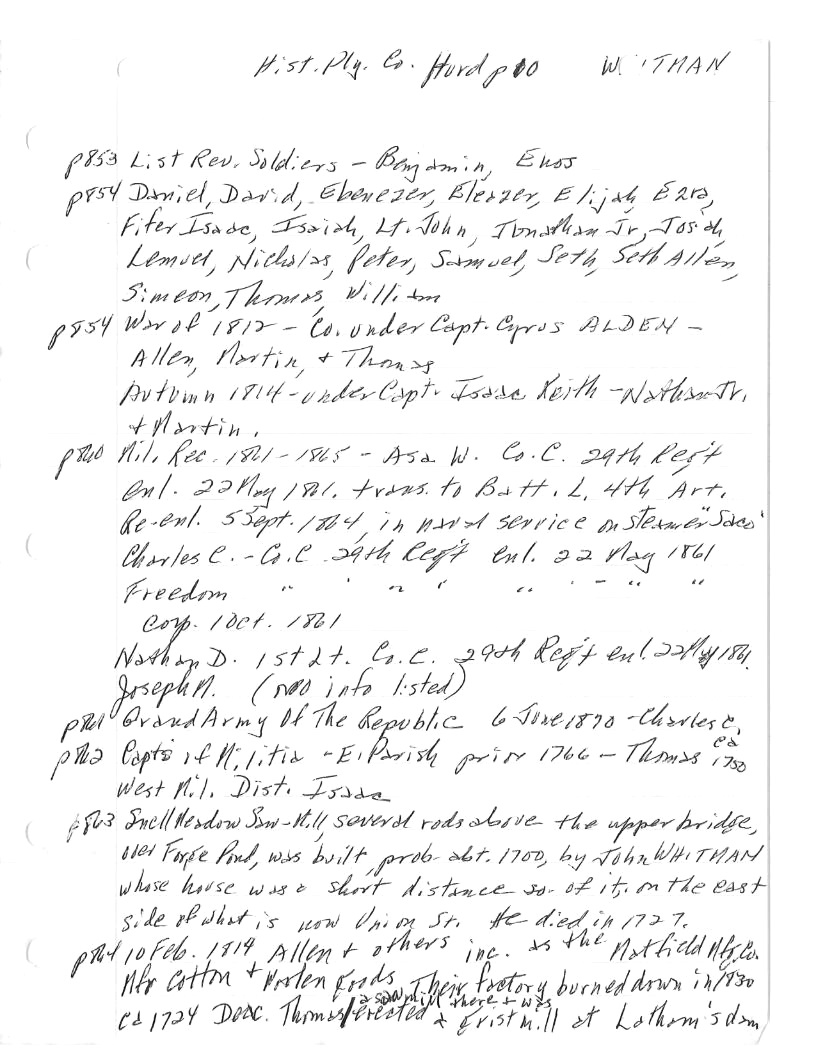 Hist. Ply. Co. Hurd p10 WHITMAN
p853 List Rev. Soldiers - Benjamin, Enos
p854 Daniel, David, Ebenezer, Eleazer, Elijah, Ezra,
Fifer Isaac, Isaiah, Lt. John, Jonathan Jr, Josiah,
Lemuel, Nicholas, Peter, Samuel, Seth, Seth Allen,
Simeon, Thomas, William
p854 War of 1812 - Co. under Capt. Cyrus ALDEN -
Allen, Martin, + Thomas
Autumn 1814 - under Capt. Isaac Keith - Nathan Jr.
+ Martin.
p860 Mil. Rec. 1861-1865 - Asa W. Co. C. 29th Reg't
enl. 22 May 1861. trans. to Batt. L, 4th Art.
Re-enl. 5 Sept. 1864, in naval service on steamer "Saco"
Charles C. - Co. C 29th Reg't enl. 22 May 1861
Freedom " " " " " " " "
Corp. 1 Oct. 1861
Nathan D. 1st Lt. Co. C. 29th Reg't enl. 22 May 1861.
Joseph M. (no info listed)
p861 Grand Army Of The Republic 6 June 1870 - Charles C.
p862 Capts of Militia - E. Parish prior 1766 - Thomas ca 1750
West Mil. Dist. Isaac
p863 Snell Meadow Saw-Mill, several rods above the upper bridge,
over Forge Pond, was built, prob. abt. 1700, by John WHITMAN
whose house was a short distance so. of it, on the east
side of what is now Union St. He died in 1727.
p864 10 Feb. 1814 Allen + others inc. as the Matfield Mfg. Co.
Mfr Cotton + Woolen goods Their factory burned down in 1830
a saw mill there + was
ca 1724 Deac. Thomas/erected a gristmill at Latham's dam